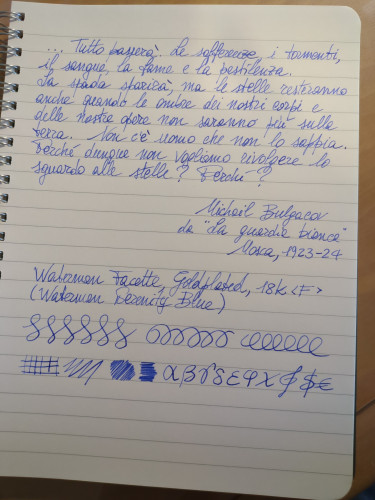 ... Tutto passerà. Le sofferenze, i tormenti,
il sangue, la fame e la pestilenza.
La spada sparirà, ma le stelle resteranno
anche quando le ombre dei nostri corpi e
delle nostre opere non saranno più sulla
terra. Non c'è uomo che non lo sappia.
Perché dunque non vogliamo rivolgere lo
sguardo alle stelle? Perché?
Michail Bulgacov
da "La guardia bianca"
Mosca, 1923-24
Waterman Facette, Goldplated, 18k <F>
(Waterman Serenity Blue)
αβγδεφχ $€